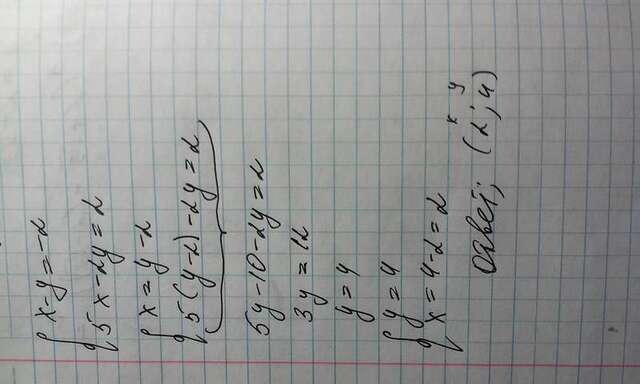 x-y=-2
5x-2y=2
x=y-2
5(y-2)-2y=2
5y-10-2y=2
3y=12
y=4
y=4
x=4-2=2
x y
ответ; (2;4)